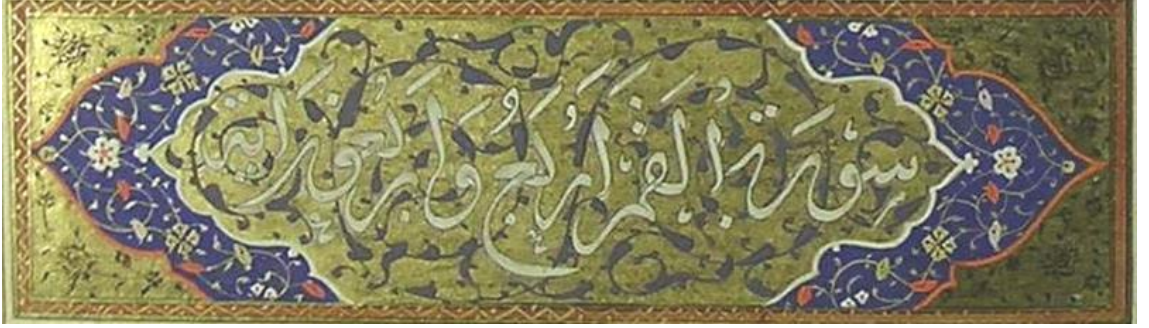 سورة القمر اربع واربعون اية